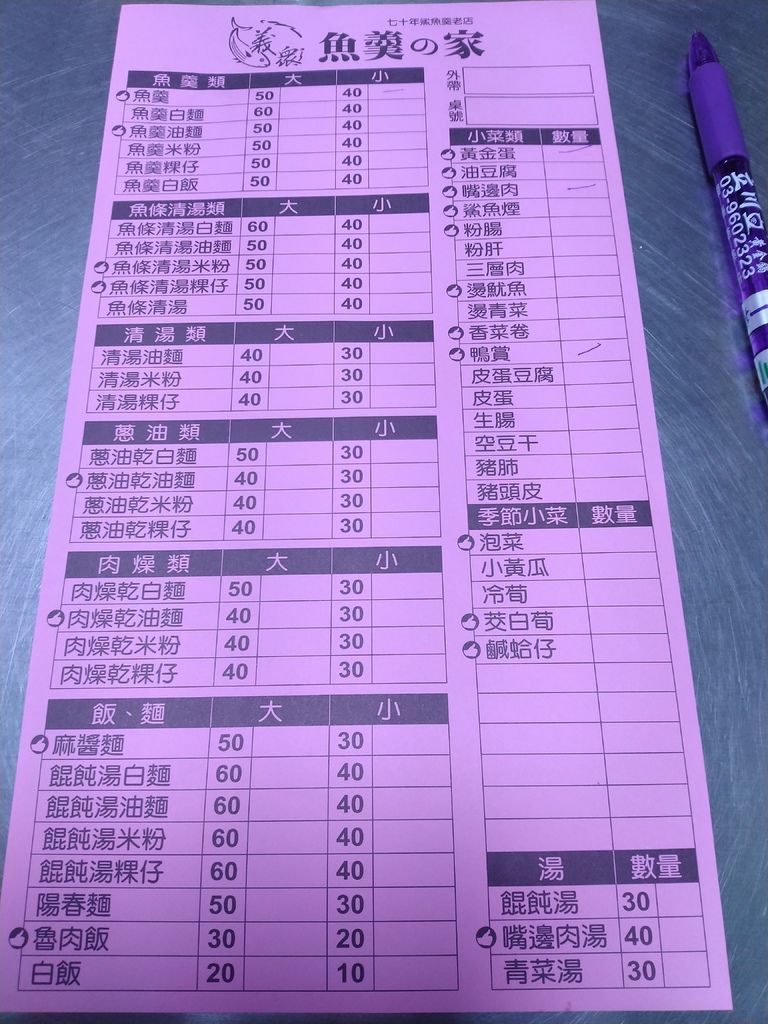 七十年鯊魚羹老店
義眾 魚羹の家
外帶
桌號
魚羹類 大 小
魚羹 50 40
魚羹白麵 60 40
魚羹油麵 50 40
魚羹米粉 50 40
魚羹粿仔 50 40
魚羹白飯 50 40
魚條清湯類 大 小
魚條清湯白麵 60 40
魚條清湯油麵 50 40
魚條清湯米粉 50 40
魚條清湯粿仔 50 40
魚條清湯 50 40
清湯類 大 小
清湯油麵 40 30
清湯米粉 40 30
清湯粿仔 40 30
蔥油類 大 小
蔥油乾白麵 50 30
蔥油乾油麵 40 30
蔥油乾米粉 40 30
蔥油乾粿仔 40 30
肉燥類 大 小
肉燥乾白麵 50 30
肉燥乾油麵 40 30
肉燥乾米粉 40 30
肉燥乾粿仔 40 30
飯、麵 大 小
麻醬麵 50 30
餛飩湯白麵 60 40
餛飩湯油麵 60 40
餛飩湯米粉 60 40
餛飩湯粿仔 60 40
陽春麵 50 30
魯肉飯 30 20
白飯 20 10
小菜類 數量
黃金蛋
油豆腐
嘴邊肉
鯊魚煙
粉腸
粉肝
三層肉
燙魷魚
燙青菜
香菜卷
鴨賞
皮蛋豆腐
皮蛋
生腸
空豆干
豬肺
豬頭皮
季節小菜 數量
泡菜
小黃瓜
冷荀
茭白荀
鹹蛤仔
湯 數量
餛飩湯 30
嘴邊肉湯 40
青菜湯 30
03-9602323